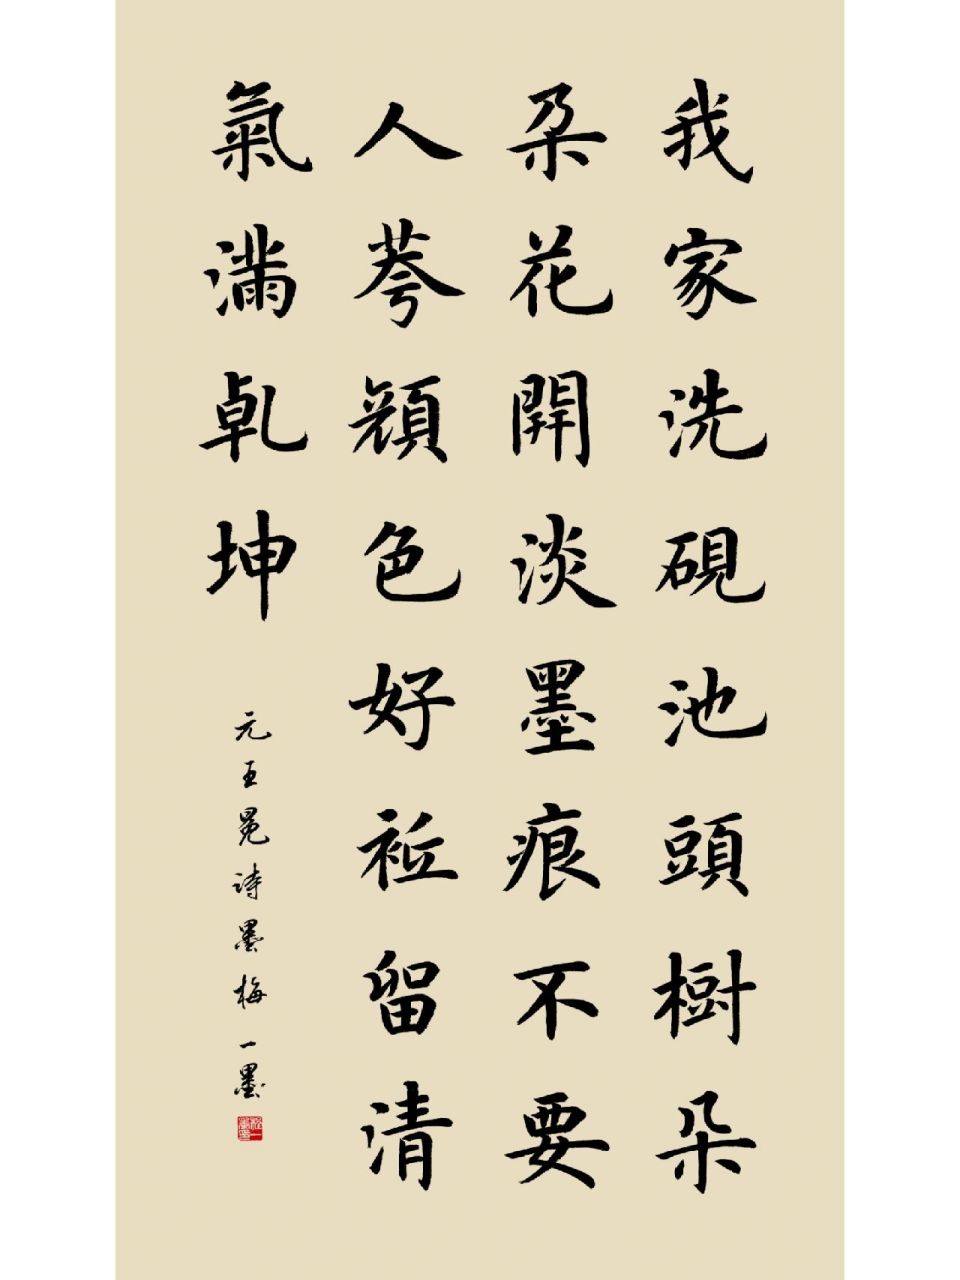 我家洗硯池頭樹朵
朵花開淡墨痕不要
人荂顔色好祗留清
氣滿乹坤
元王冕诗墨梅一墨